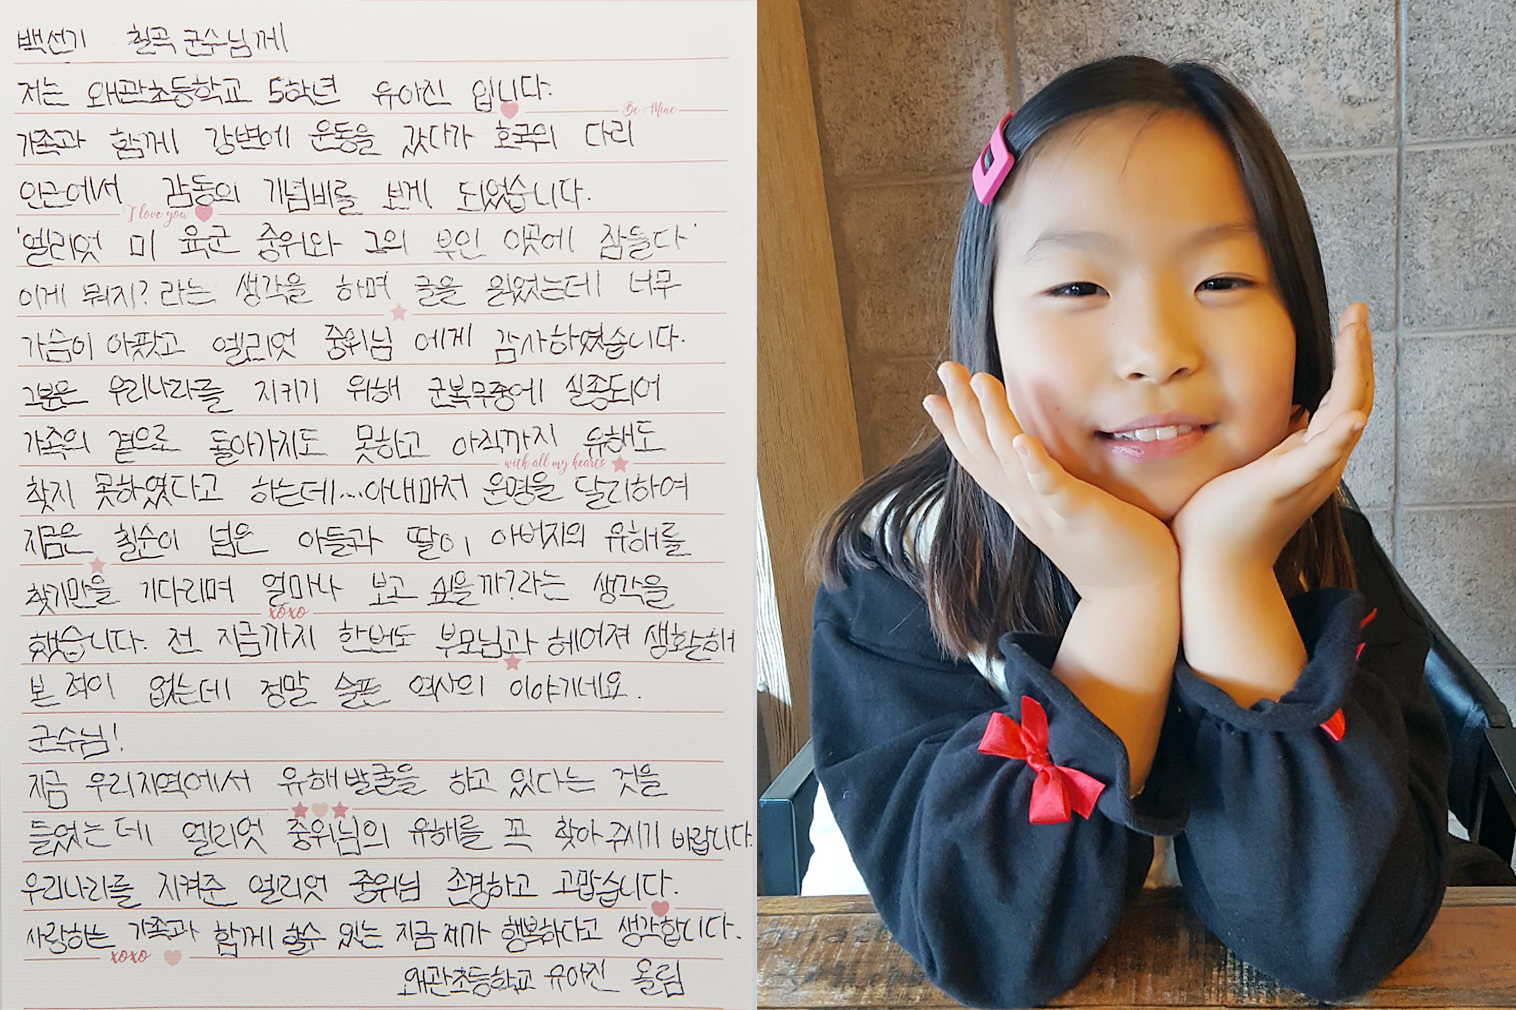 백선기 칠곡 군수님께
저는 왜관초등학교 5학년 유아진 입니다.
Be Mine
가족과 함께 강변에 운동을 갔다가 호국의 다리
인근에서 감동의 기념비를 보게 되었습니다.
I love you
'엘리엇 미 육군 중위와 그의 부인 이곳에 잠들다'
이게 뭐지? 라는 생각을 하며 글을 읽었는데 너무
가슴이 아팠고 엘리엇 중위님 에게 감사하였습니다.
그분은 우리나라를 지키기 위해 군복무중에 실종되어
가족의 곁으로 돌아가지도 못하고 아직까지 유해도
with all my hearts
찾지 못하였다고 하는데...아내마저 운명을 달리하여
지금은 칠순이 넘은 아들과 딸이 아버지의 유해를
찾기만을 기다리며 얼마나 보고 싶을까?라는 생각을
xoxo
했습니다. 전 지금까지 한번도 부모님과 헤어져 생활해
본 적이 없는데 정말 슬픈 역사의 이야기네요.
군수님!
지금 우리지역에서 유해발굴을 하고 있다는 것을
들었는데 엘리엇 중위님의 유해를 꼭 찾아 주시기 바랍니다.
우리나라를 지켜준 엘리엇 중위님 존경하고 고맙습니다.
사랑하는 가족과 함께 할수 있는 지금 제가 행복하다고 생각합니다.
xoxo
왜관초등학교 유아진 올림